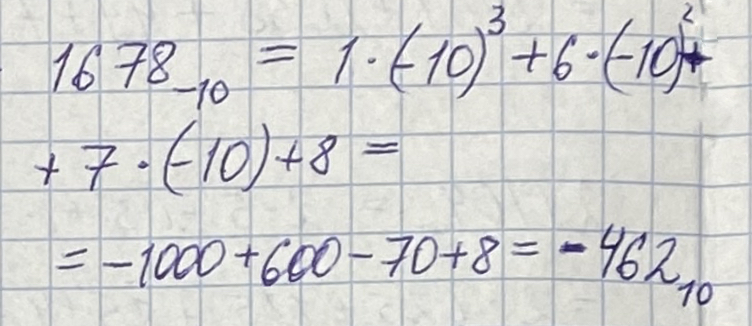 1678₋₁₀ = 1·(-10)³+6·(-10)²+
+7·(-10)+8 =
=-1000+600-70+8=-462₁₀